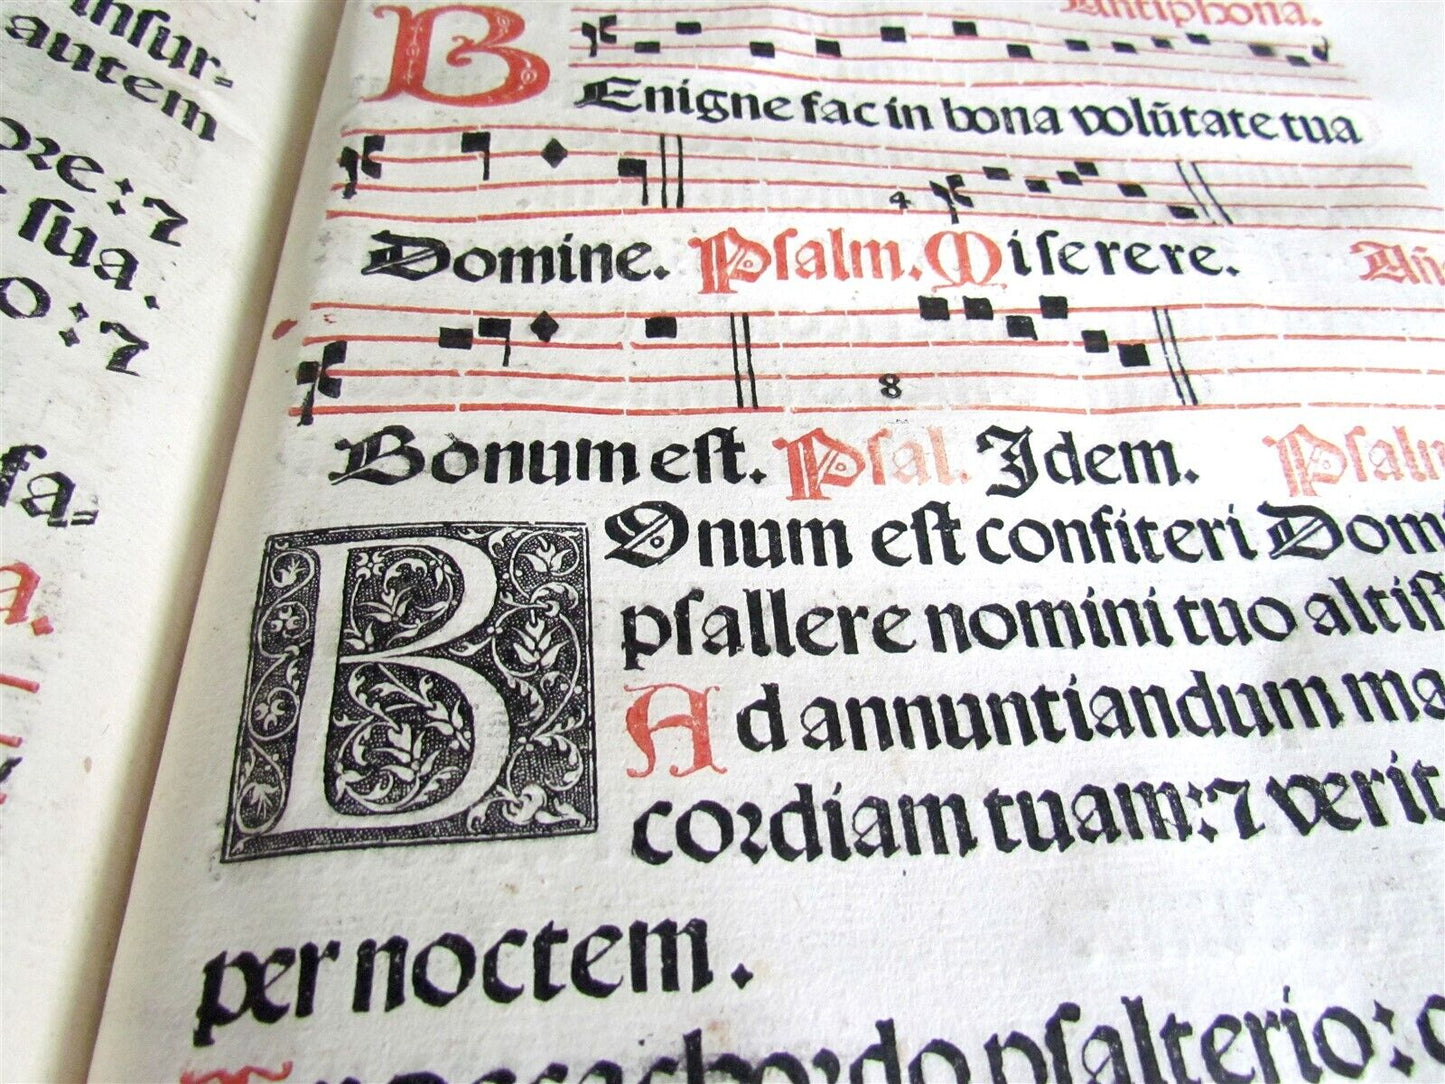 insur-
autem
ore:⁊
sua.
o:⁊
fa-
a.
Antiphona.
BEnigne fac in bona volūtate tua
4
Domine. Psalm. Miserere. Añ
8
Bonum est. Psal. Idem. Psalm
BOnum est confiteri Domi
psallere nomini tuo altiſ
Ad annuntiandum ma
cordiam tuam:⁊ verit
per noctem.
psalterio: